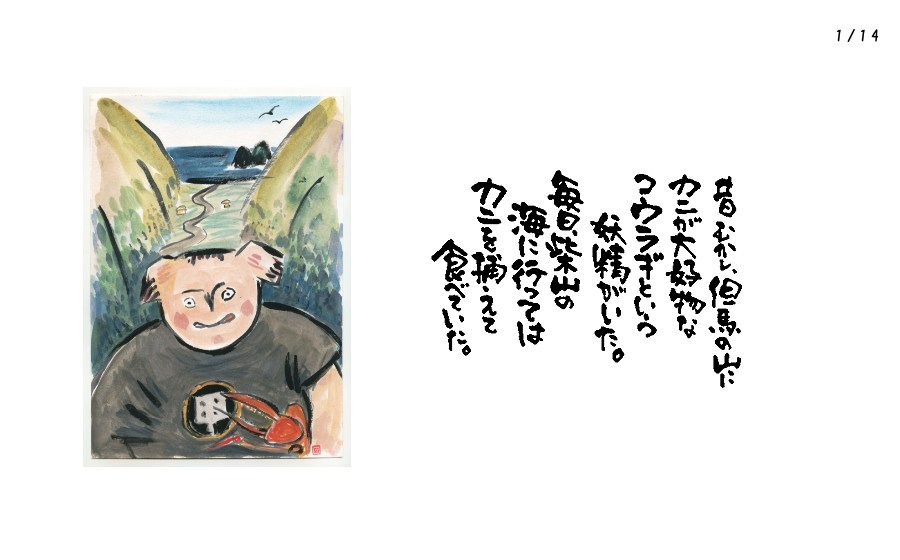 1/14
昔むかし、但馬の山に
カニが大好物な
コウラギという
妖精がいた。
毎日柴山の
海に行っては
カニを捕えて
食べていた。